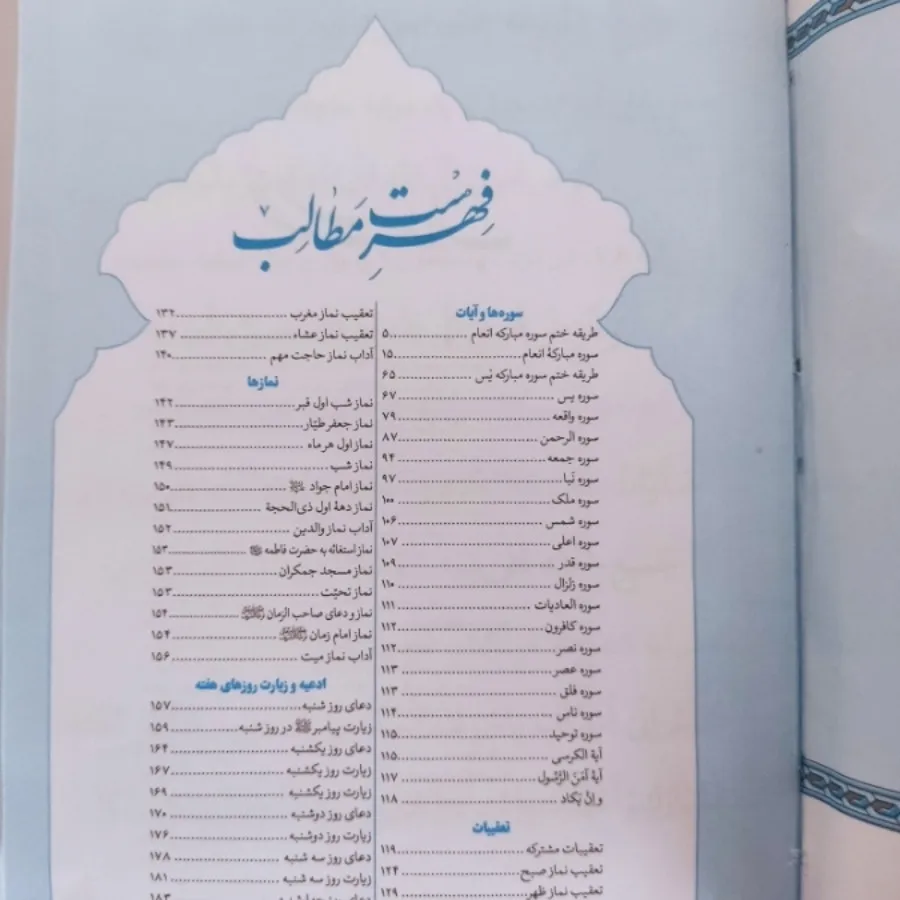 فهرست مطالب ۷
سوره‌ها و آیات
طریقه ختم سوره مبارکه انعام ..................۵
سوره مبارکهٔ انعام..............................۱۵
طریقه ختم سوره مبارکه یٰس ..................۶۵
سوره یس ......................................۶۷
سوره واقعه ....................................۷۹
سوره الرحمن ..................................۸۷
سوره جمعه ....................................۹۴
سوره نَبا........................................۹۷
سوره ملک ....................................۱۰۰
سوره شمس ..................................۱۰۶
سوره اعلی....................................۱۰۷
سوره قدر ....................................۱۰۹
سوره زلزال ..................................۱۱۰
سوره العادیات ................................۱۱۱
سوره کافرون..................................۱۱۲
سوره نصر ....................................۱۱۲
سوره عصر ....................................۱۱۳
سوره فلق ....................................۱۱۳
سوره ناس ....................................۱۱۴
سوره توحید ..................................۱۱۵
آیة الکرسی ..................................۱۱۵
آیهٔ آمَنَ الرَّسُول ..............................۱۱۷
وَ اِنْ یَکاد ....................................۱۱۸
تعقیبات
تعقیبات مشترکه ..............................۱۱۹
تعقیب نماز صبح..............................۱۲۴
تعقیب نماز ظهر..............................۱۲۹
تعقیب نماز مغرب ............................۱۳۲
تعقیب نماز عشاء ............................۱۳۷
آداب نماز حاجت مهم ........................۱۴۰
نمازها
نماز شب اول قبر..............................۱۴۲
نماز جعفر طیّار................................۱۴۳
نماز اول هر ماه ..............................۱۴۷
نماز شب ....................................۱۴۹
نماز امام جواد ..............................۱۵۰
نماز دههٔ اول ذی‌الحجة ......................۱۵۱
آداب نماز والدین ............................۱۵۲
نماز استغاثه به حضرت فاطمه ................۱۵۳
نماز مسجد جمکران ..........................۱۵۳
نماز تحیّت ..................................۱۵۳
نماز و دعای صاحب الزمان ..................۱۵۴
نماز امام زمان ..............................۱۵۴
آداب نماز میت ..............................۱۵۶
ادعیه و زیارت روزهای هفته
دعای روز شنبه................................۱۵۷
زیارت پیامبر ﷺ در روز شنبه................۱۵۹
دعای روز یکشنبه ............................۱۶۴
زیارت روز یکشنبه ..........................۱۶۷
زیارت روز یکشنبه ..........................۱۶۹
دعای روز دوشنبه ............................۱۷۰
زیارت روز دوشنبه ..........................۱۷۶
دعای روز سه شنبه ..........................۱۷۸
زیارت روز سه شنبه ..........................۱۸۱